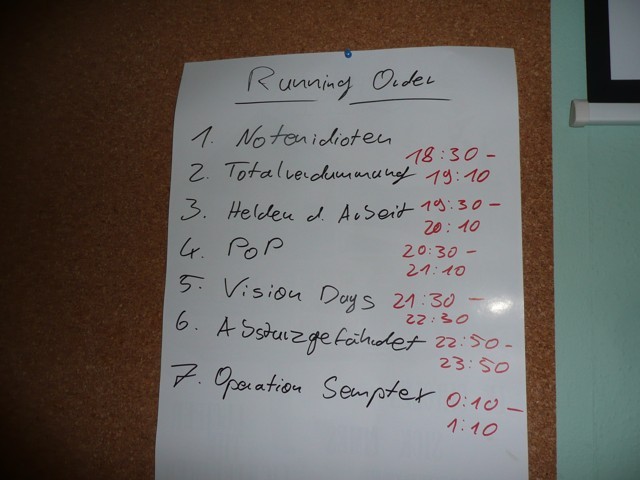 Running Order
1. Notenidioten
2. Totalverdummung 18:30 - 19:10
3. Helden d. Arbeit 19:30 - 20:10
4. PoP 20:30 - 21:10
5. Vision Days 21:30 - 22:30
6. Absturzgefährdet 22:50 - 23:50
7. Operation Semptex 0:10 - 1:10